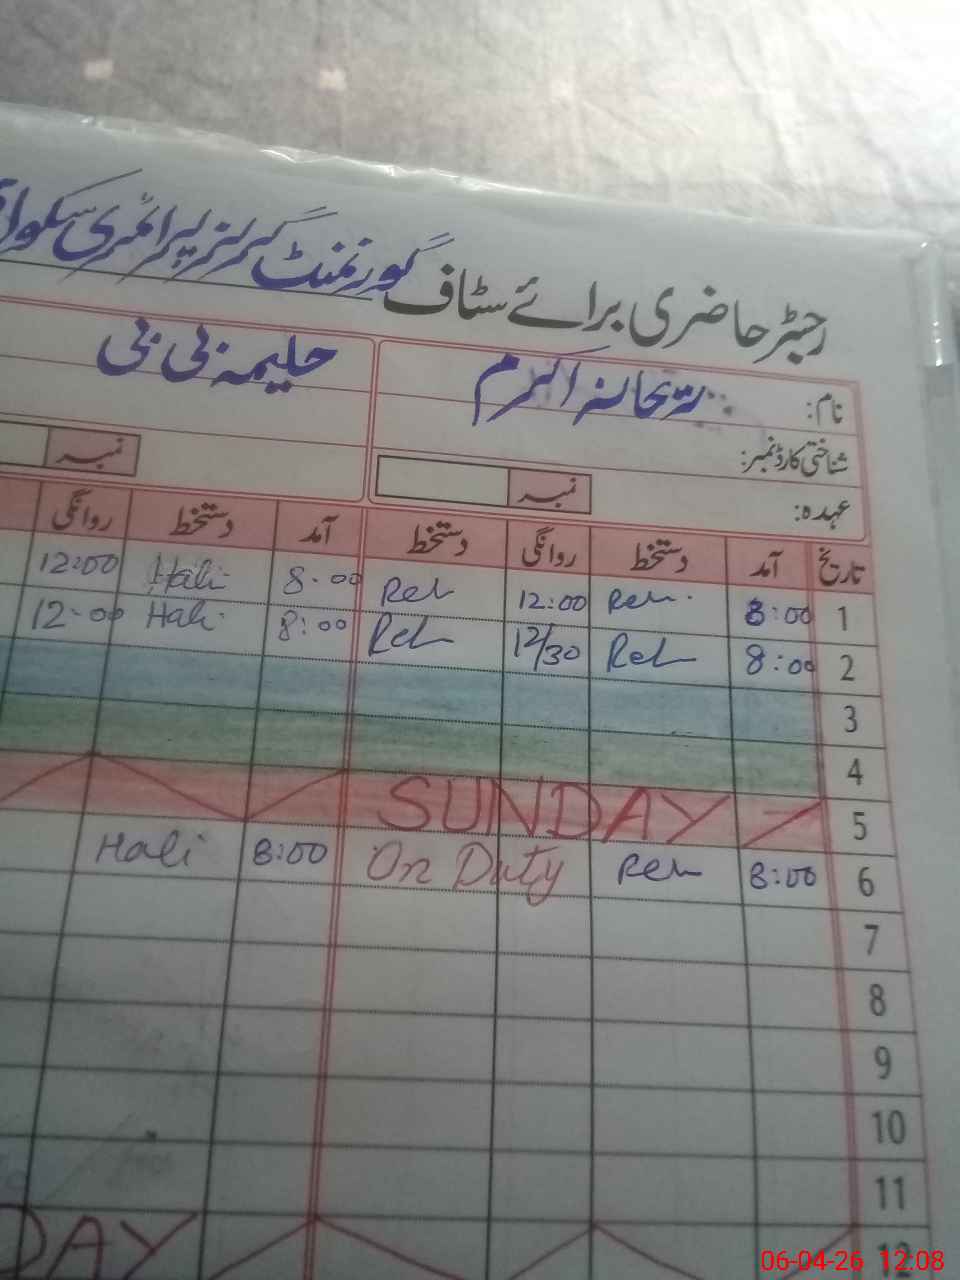 رجسٹر حاضری برائے سٹاف گورنمنٹ گرلز پرائمری سکول
نام: ریحانہ اکرم حلیمہ بی بی
شناختی کارڈ نمبر:
عہدہ: نمبر نمبر
تاریخ آمد دستخط روانگی دستخط آمد دستخط روانگی
1 8:00 Reh 12:00 Reh 8:00 Hali 12:00
2 8:00 Reh 12/30 Reh 8:00 Hali 12:00
3
4
5 SUNDAY
6 8:00 Reh On Duty 8:00 Hali
7
8
9
10
11
12 DAY
06-04-26 12:08